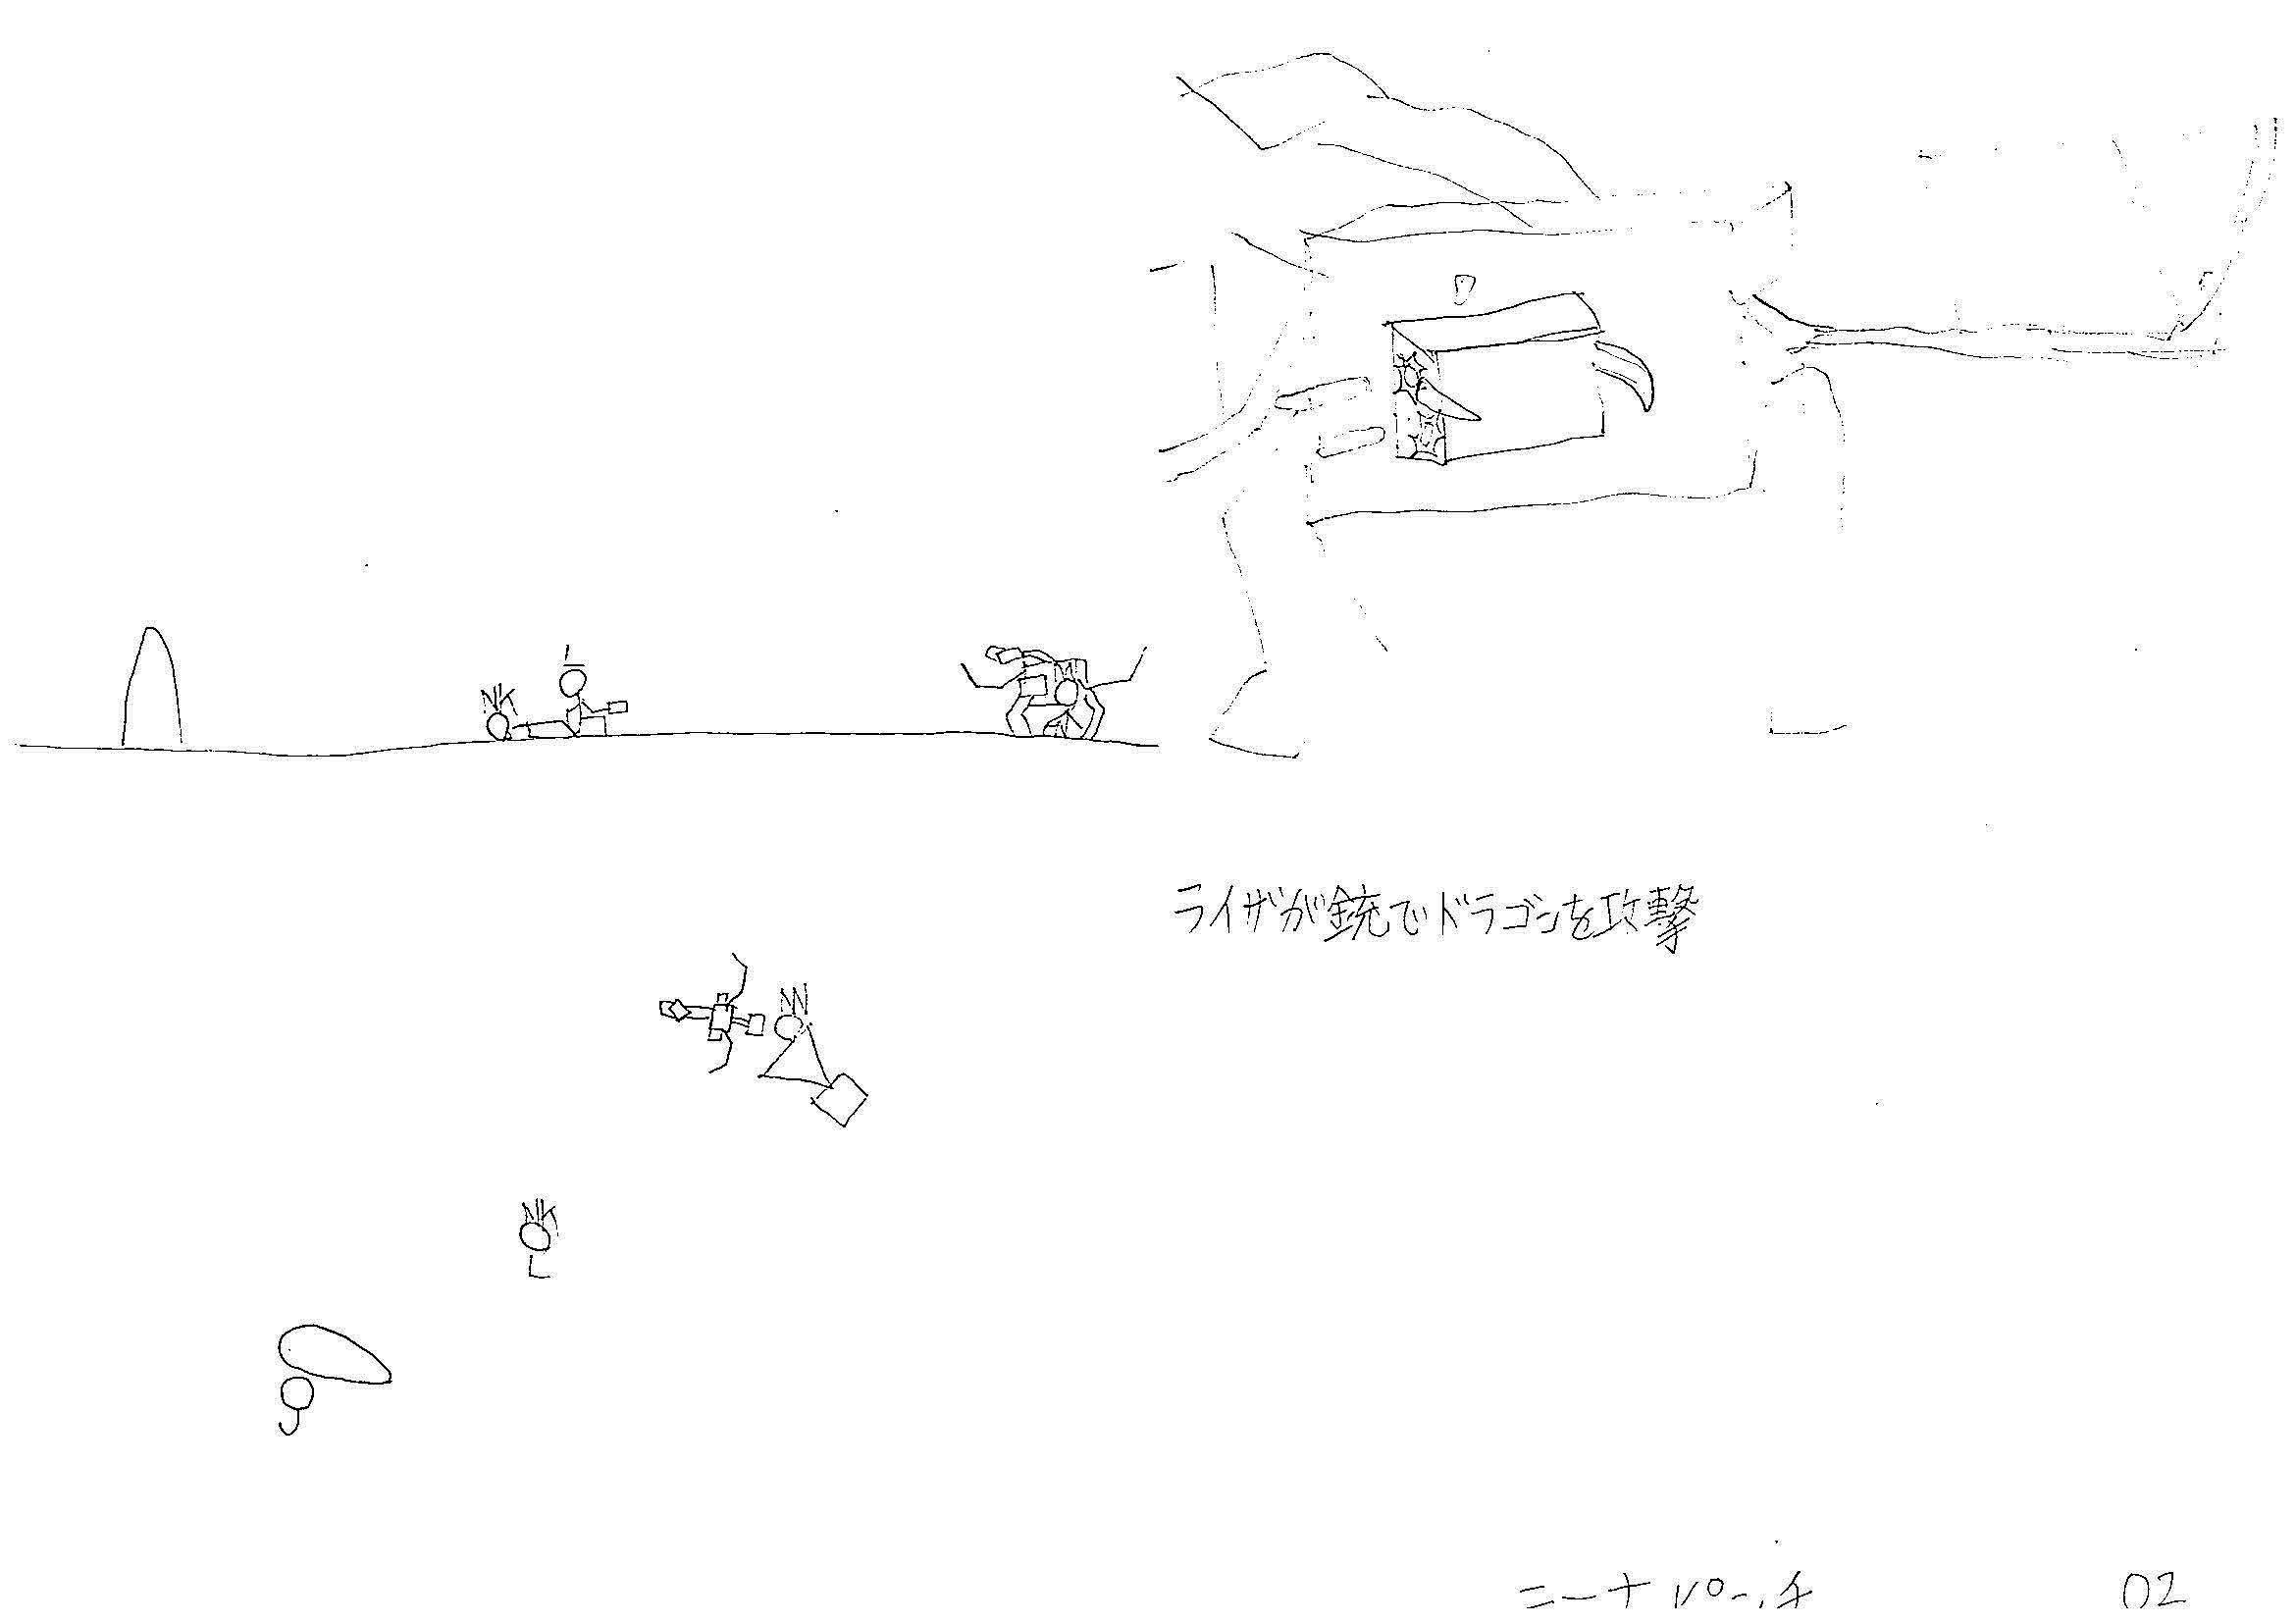 D
NK
ライザが銃でドラゴンを攻撃
NN
NK
ニーナパンチ 02